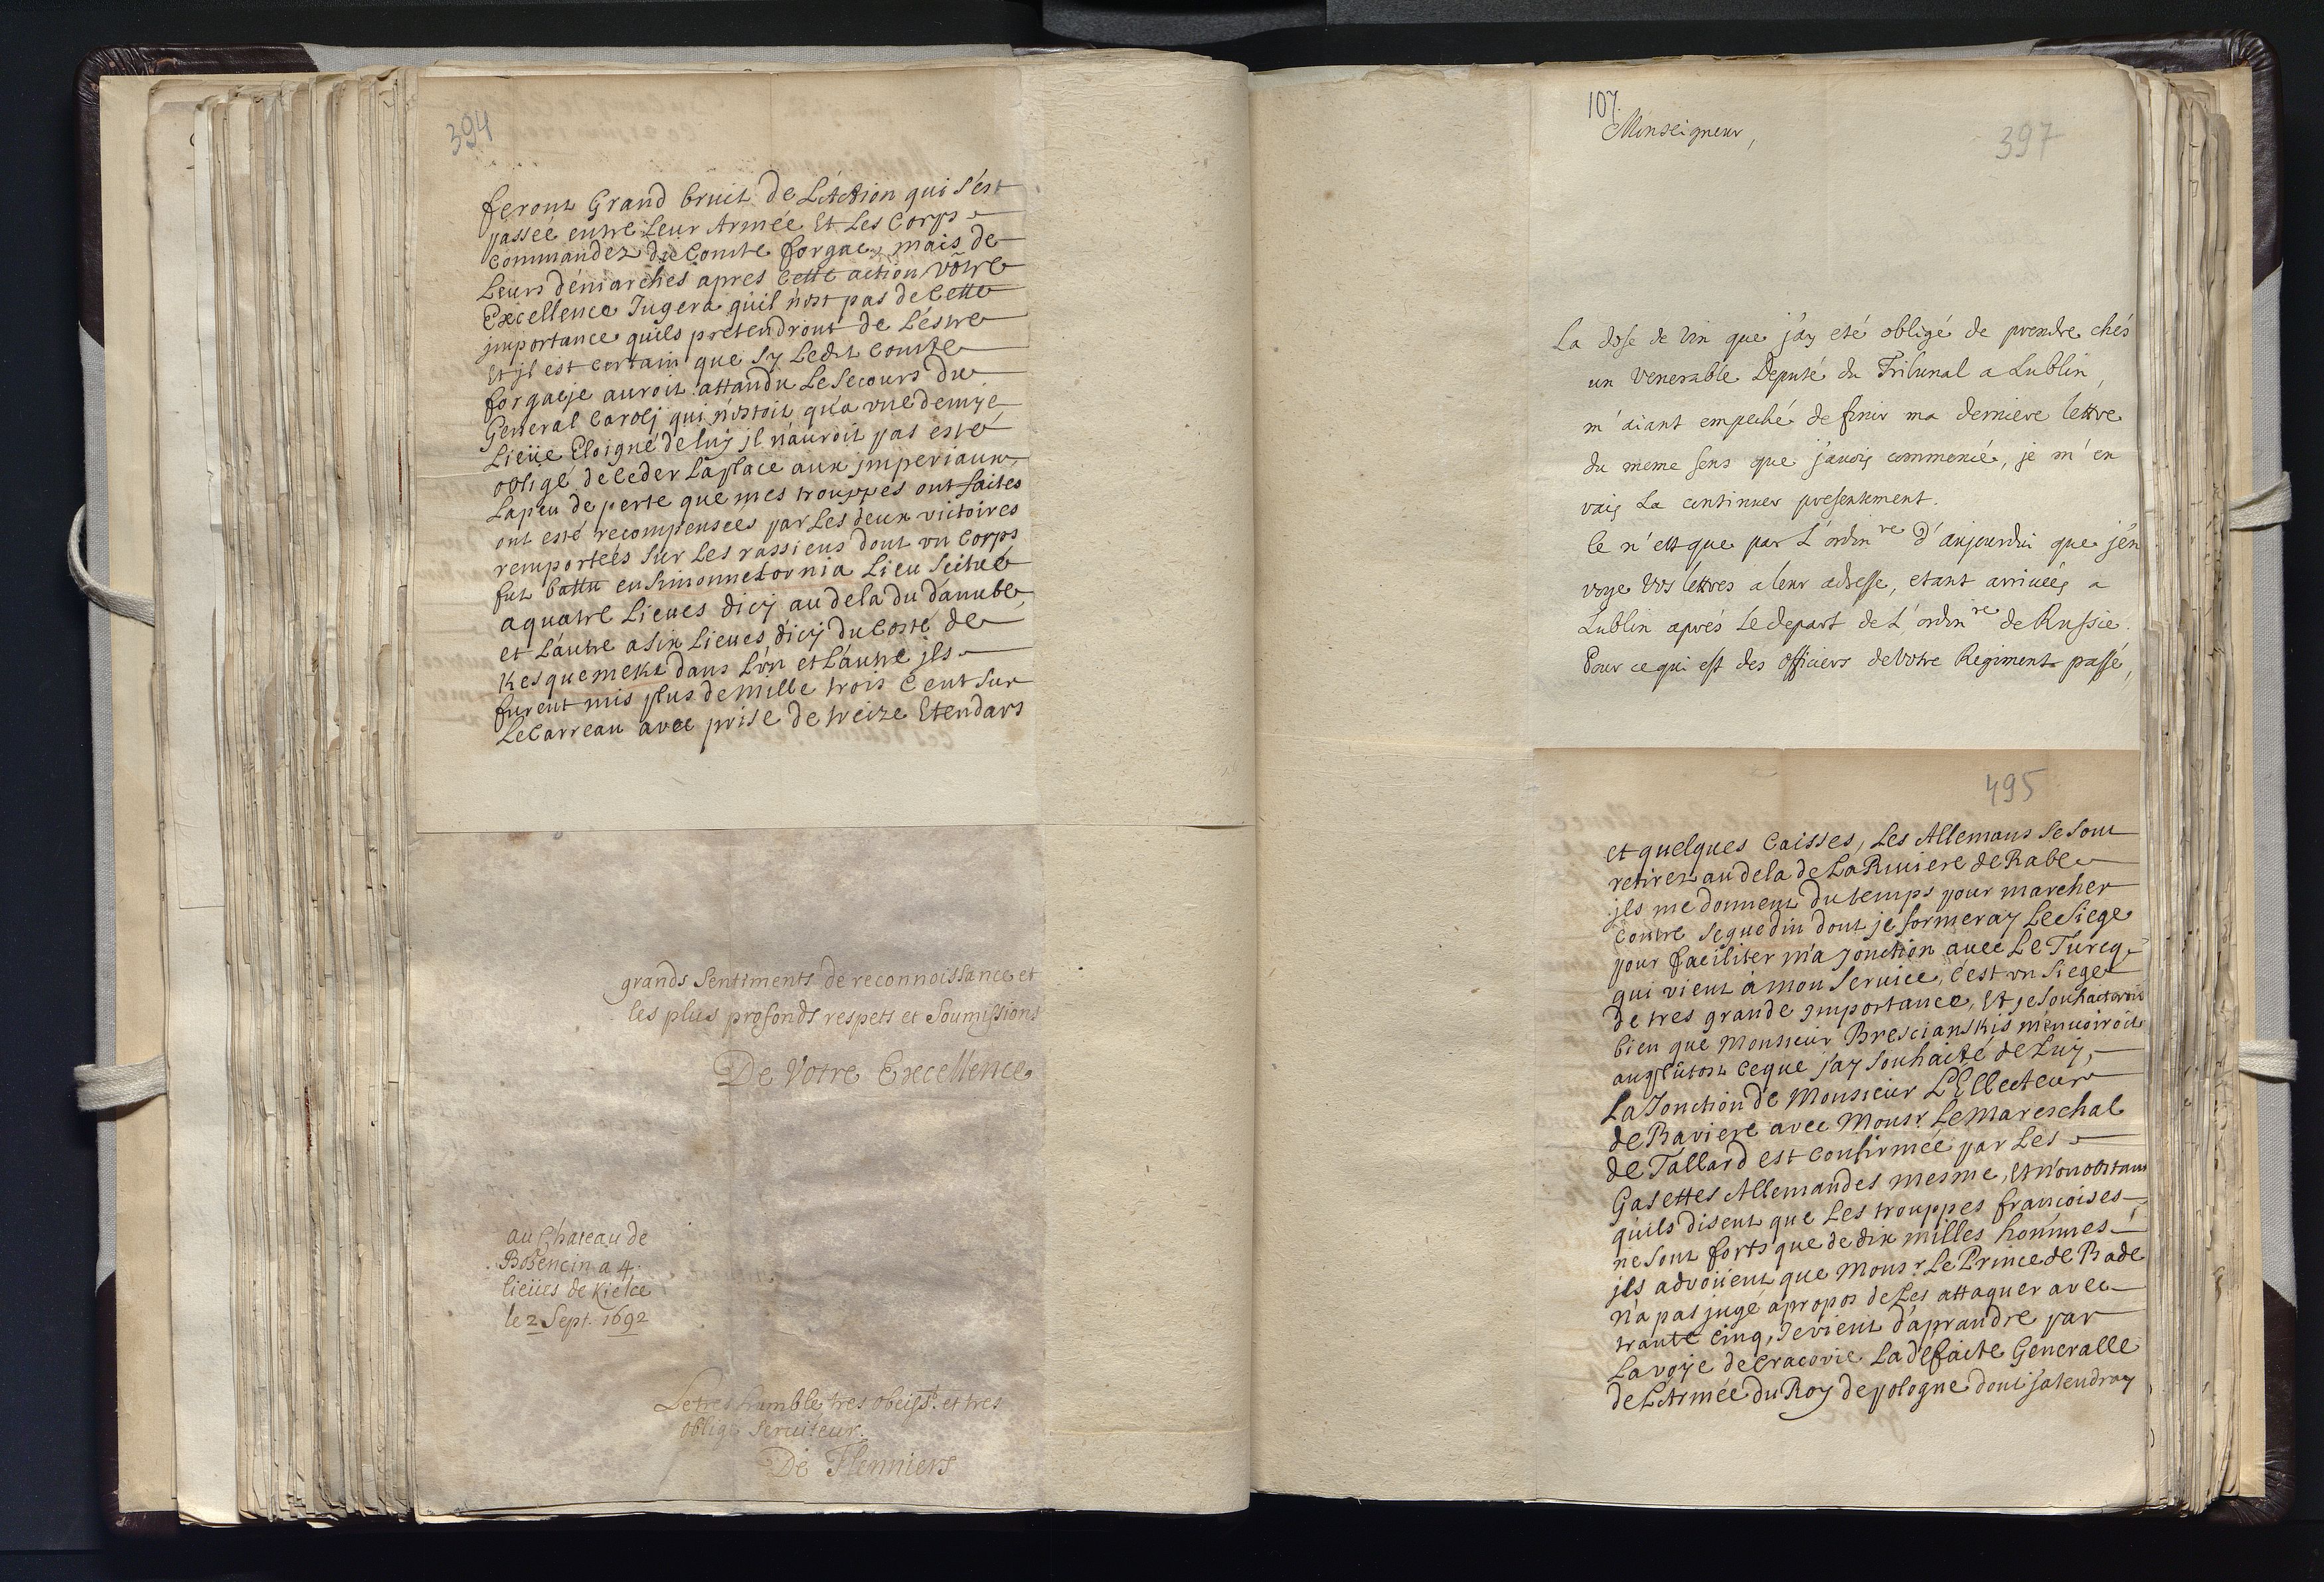 394
feront Grand bruit de L'Action qui s'est
passée entre Leur Armée Et Les Corps
commandez du Comte forgae, mais de
Leurs démarches apres Cette action vôtre
Excellence Jugera quil n'est pas de Cette
jmportance quils pretendront de L'estre
Et jl est certain que sy Ledt Comte
forgaeje auroit attandu Le Secours du
General Carolj qui n'estoit qu'a vne demye
Lieüe Eloigné de luy jl n'auroit pas esté
obligé de Ceder La place aux jmperiaux,
La peu de perte que mes trouppes ont faites
ont esté recompensées par Les deux victoires
remportées sur Les rassiens dont vn Corps
fut battu en Simonnetornia Lieu Scitué
a quatre Lieues dicy au dela du danube,
et L'autre a six Lieues d'icy du Costé de
Kesquemeke dans L'vn et L'autre jls
furent mis plus de mille trois Cent sur
Le Carreau avec prise de treize Etendars
grands Sentiments de reconnoissance et
les plus profonds respets et Soumissions
De Votre Excellence
au Chateau de
Bosencin a 4.
lieües de Kielce
le 2 Sept. 1692
Le tres humble tres obeisst. et tres
obligé Seruiteur.
De Flemniers
107.
Monseigneur,
397
La dose de vin que j'ay eté obligé de prendre chés
un Venerable Deputé du Tribunal a Lublin,
m'aiant empeché de finir ma derniere lettre
du meme sens que j'avois commencé, je m'en
vais La continuer presentement.
Ce n'est que par L'ordinre d'aujourdui que j'en
voye Vos lettres a leur adresse, etant arrivées a
Lublin aprés Le depart de L'ordinre de Russie.
Pour ce qui est des officiers de Votre Regiment passé,
495
et quelques Caisses, Les Allemans se sont
retirez au dela de La Riuiere de Rabe
jls me donnent du temps pour marcher
contre Seguedin dont je formeray Le Siege
pour faciliter ma Jonction auec Le Turcq
qui vient à mon Seruice, C'est vn Siege
de tres grande jmportance, Et je Souhaiterois
bien que Monsieur Brescianskis m'enuoiroit
au plûtost Ce que j'ay Souhaité de Luy,
La Jonction de Monsieur L'Ellecteur
de Baviere avec Monsr. Le Mareschal
de Tallard est confirmée par Les
Gasettes Allemandes mesme, Et n'onobstant
quils disent que Les trouppes francoises
ne sont forts que de dix milles hommes
jls advoüent que Monsr. Le Prince de Bade
n'a pas jugé apropos de Les attaquer avec
trante Cinq, Je vient d'aprandre par
La voÿe de Cracovie La defaite Generalle
de L'Armée du Roy de pologne dont j'atendray